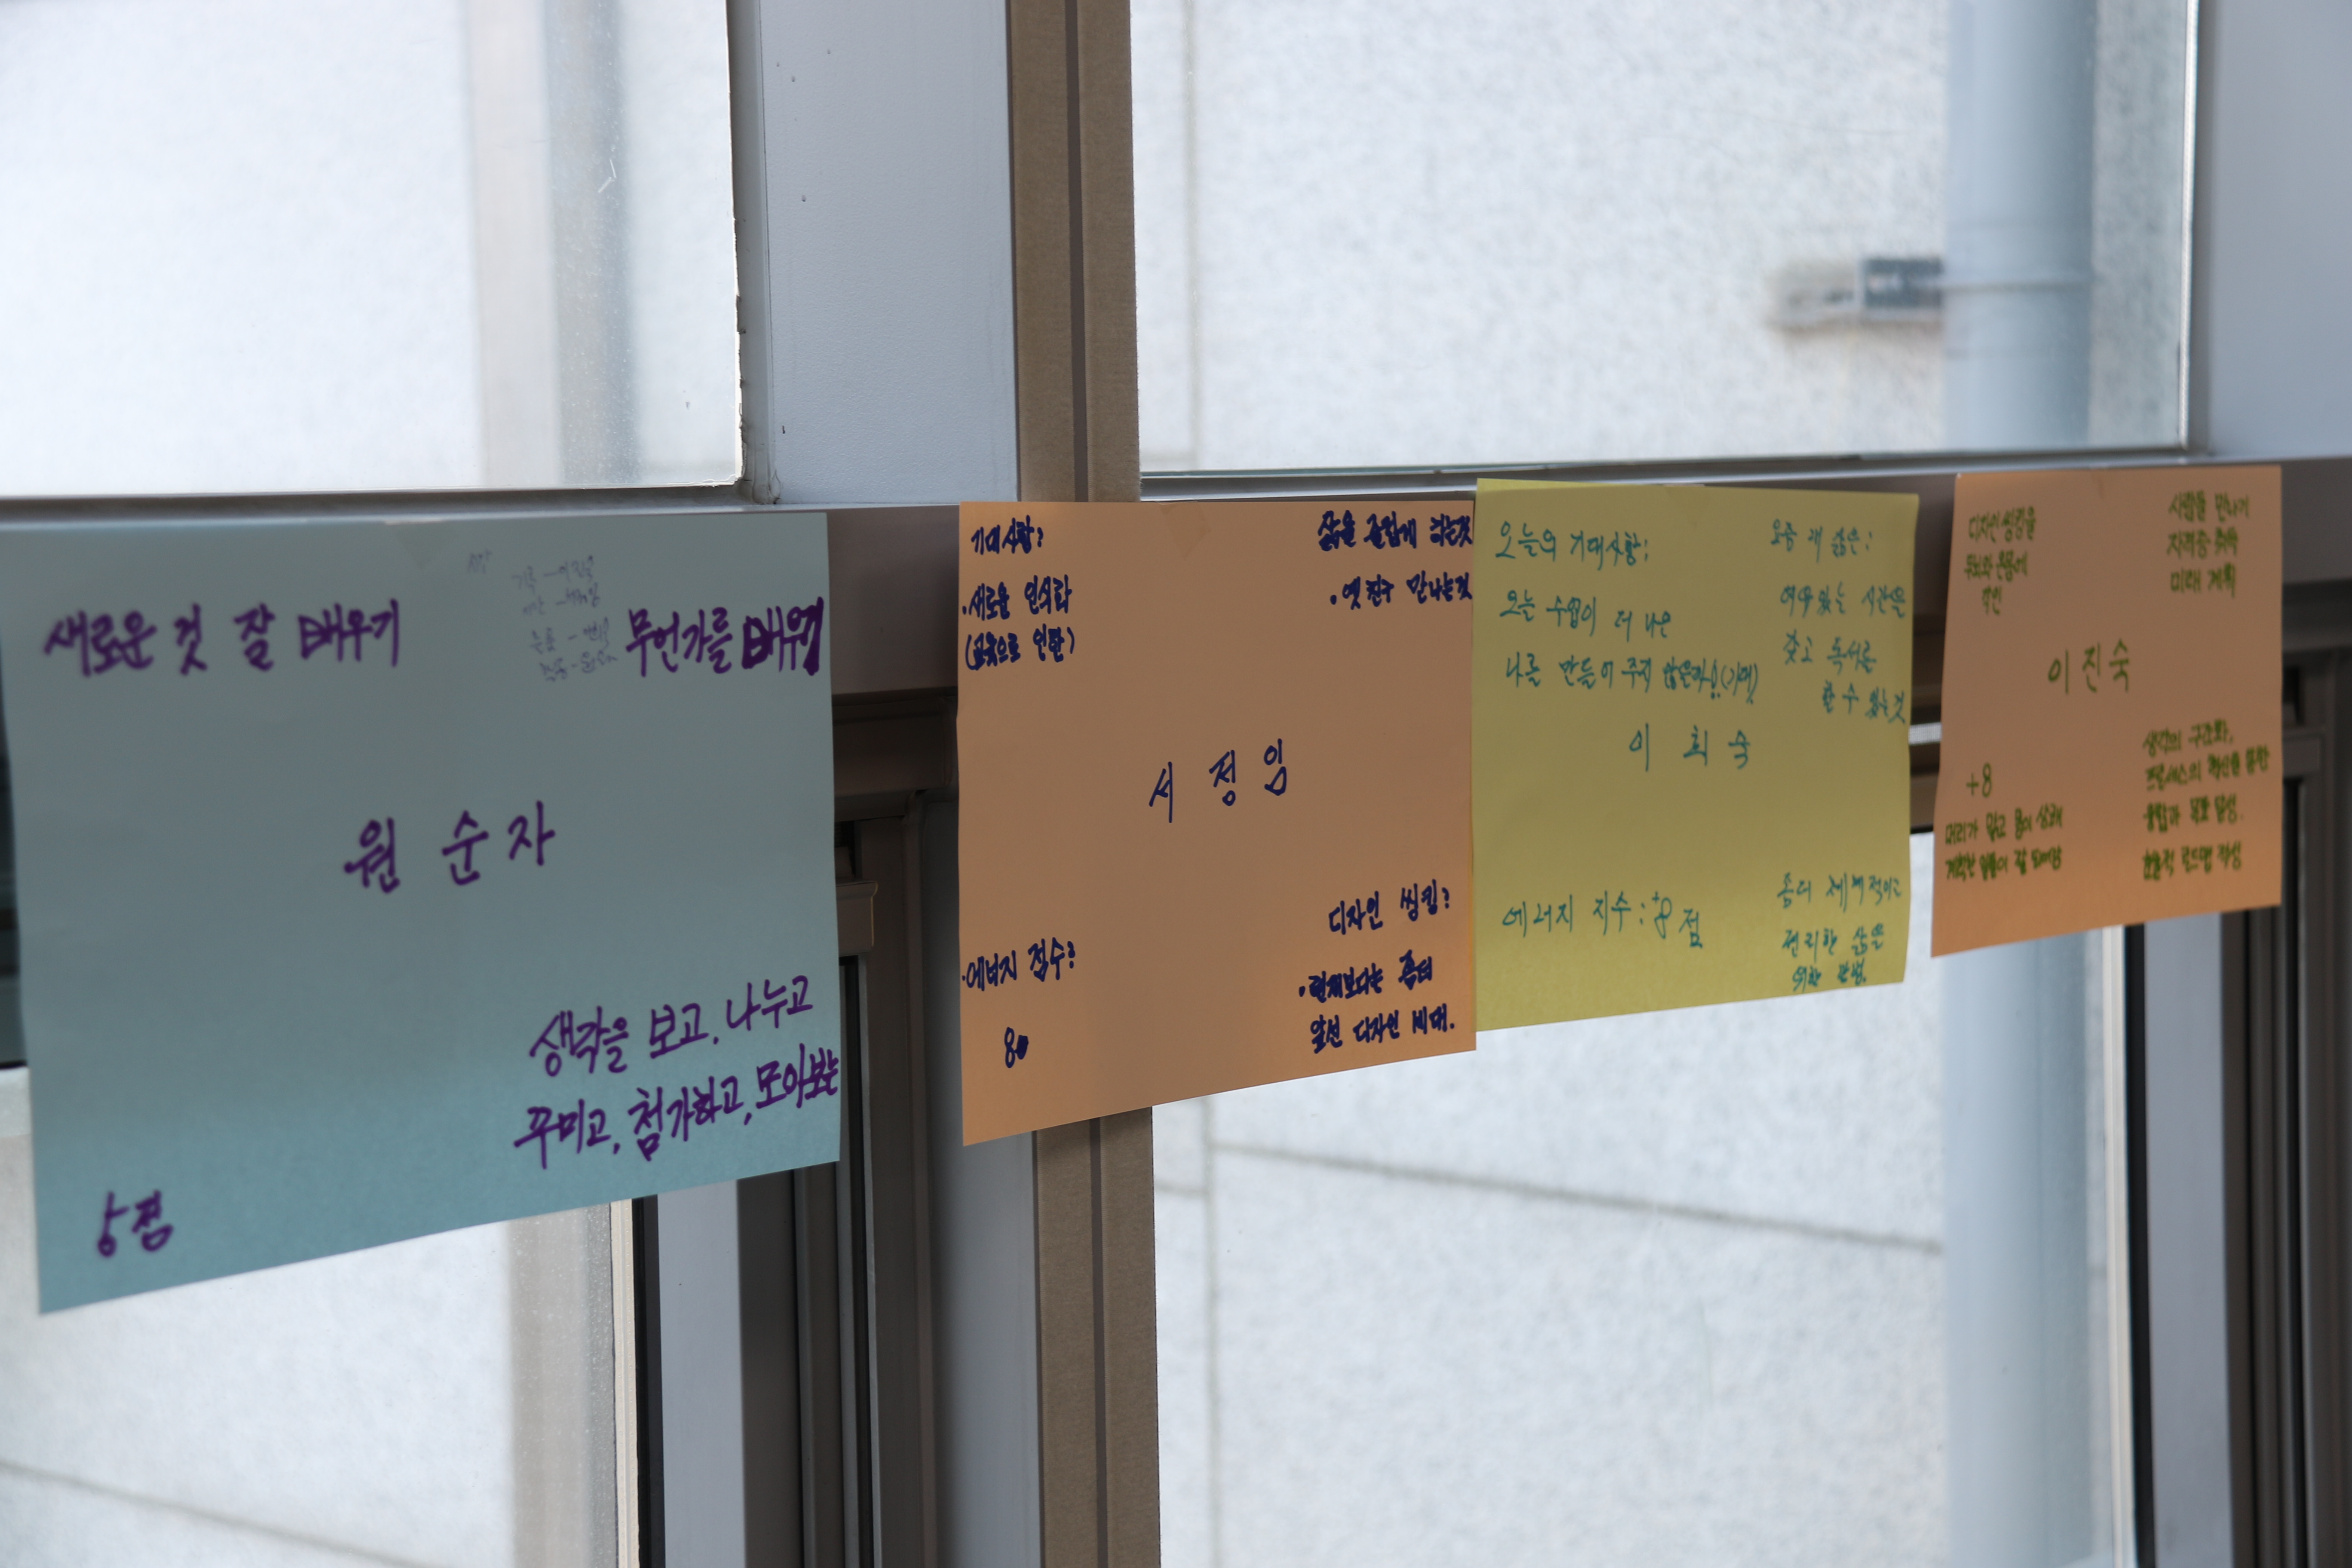 새로운 것 잘 배우기
무언가를 배워
원 순 자
생각을 보고, 나누고
꾸미고, 첨가하고, 모아보는
5점
기대사항?
·새로운 인식과
삶을 즐겁게 하는것
·옛 친구 만나는것
서 정 임
·에너지 점수?
80
디자인 씽킹?
·현재보다는 좀더
앞선 디자인 시대.
오늘의 기대사항:
오늘 수업이 더 나은
나를 만들어 주지 않을까!
요즘 내 삶은:
여유있는 시간을
갖고 독서를
할 수 있는 것
이 희 숙
에너지 지수: +8 점
좀더 체계적이고
편리한 삶을
위한
디자인씽킹을
사람들 만나기
자격증 취득
미래 계획
이진숙
+8
머리가 맑고 몸이 상쾌
계획한 일들이 잘 되어감
생각의 구조화,
프로세스의 혁신을 통한
융합과 목표 달성.
효율적 로드맵 작성